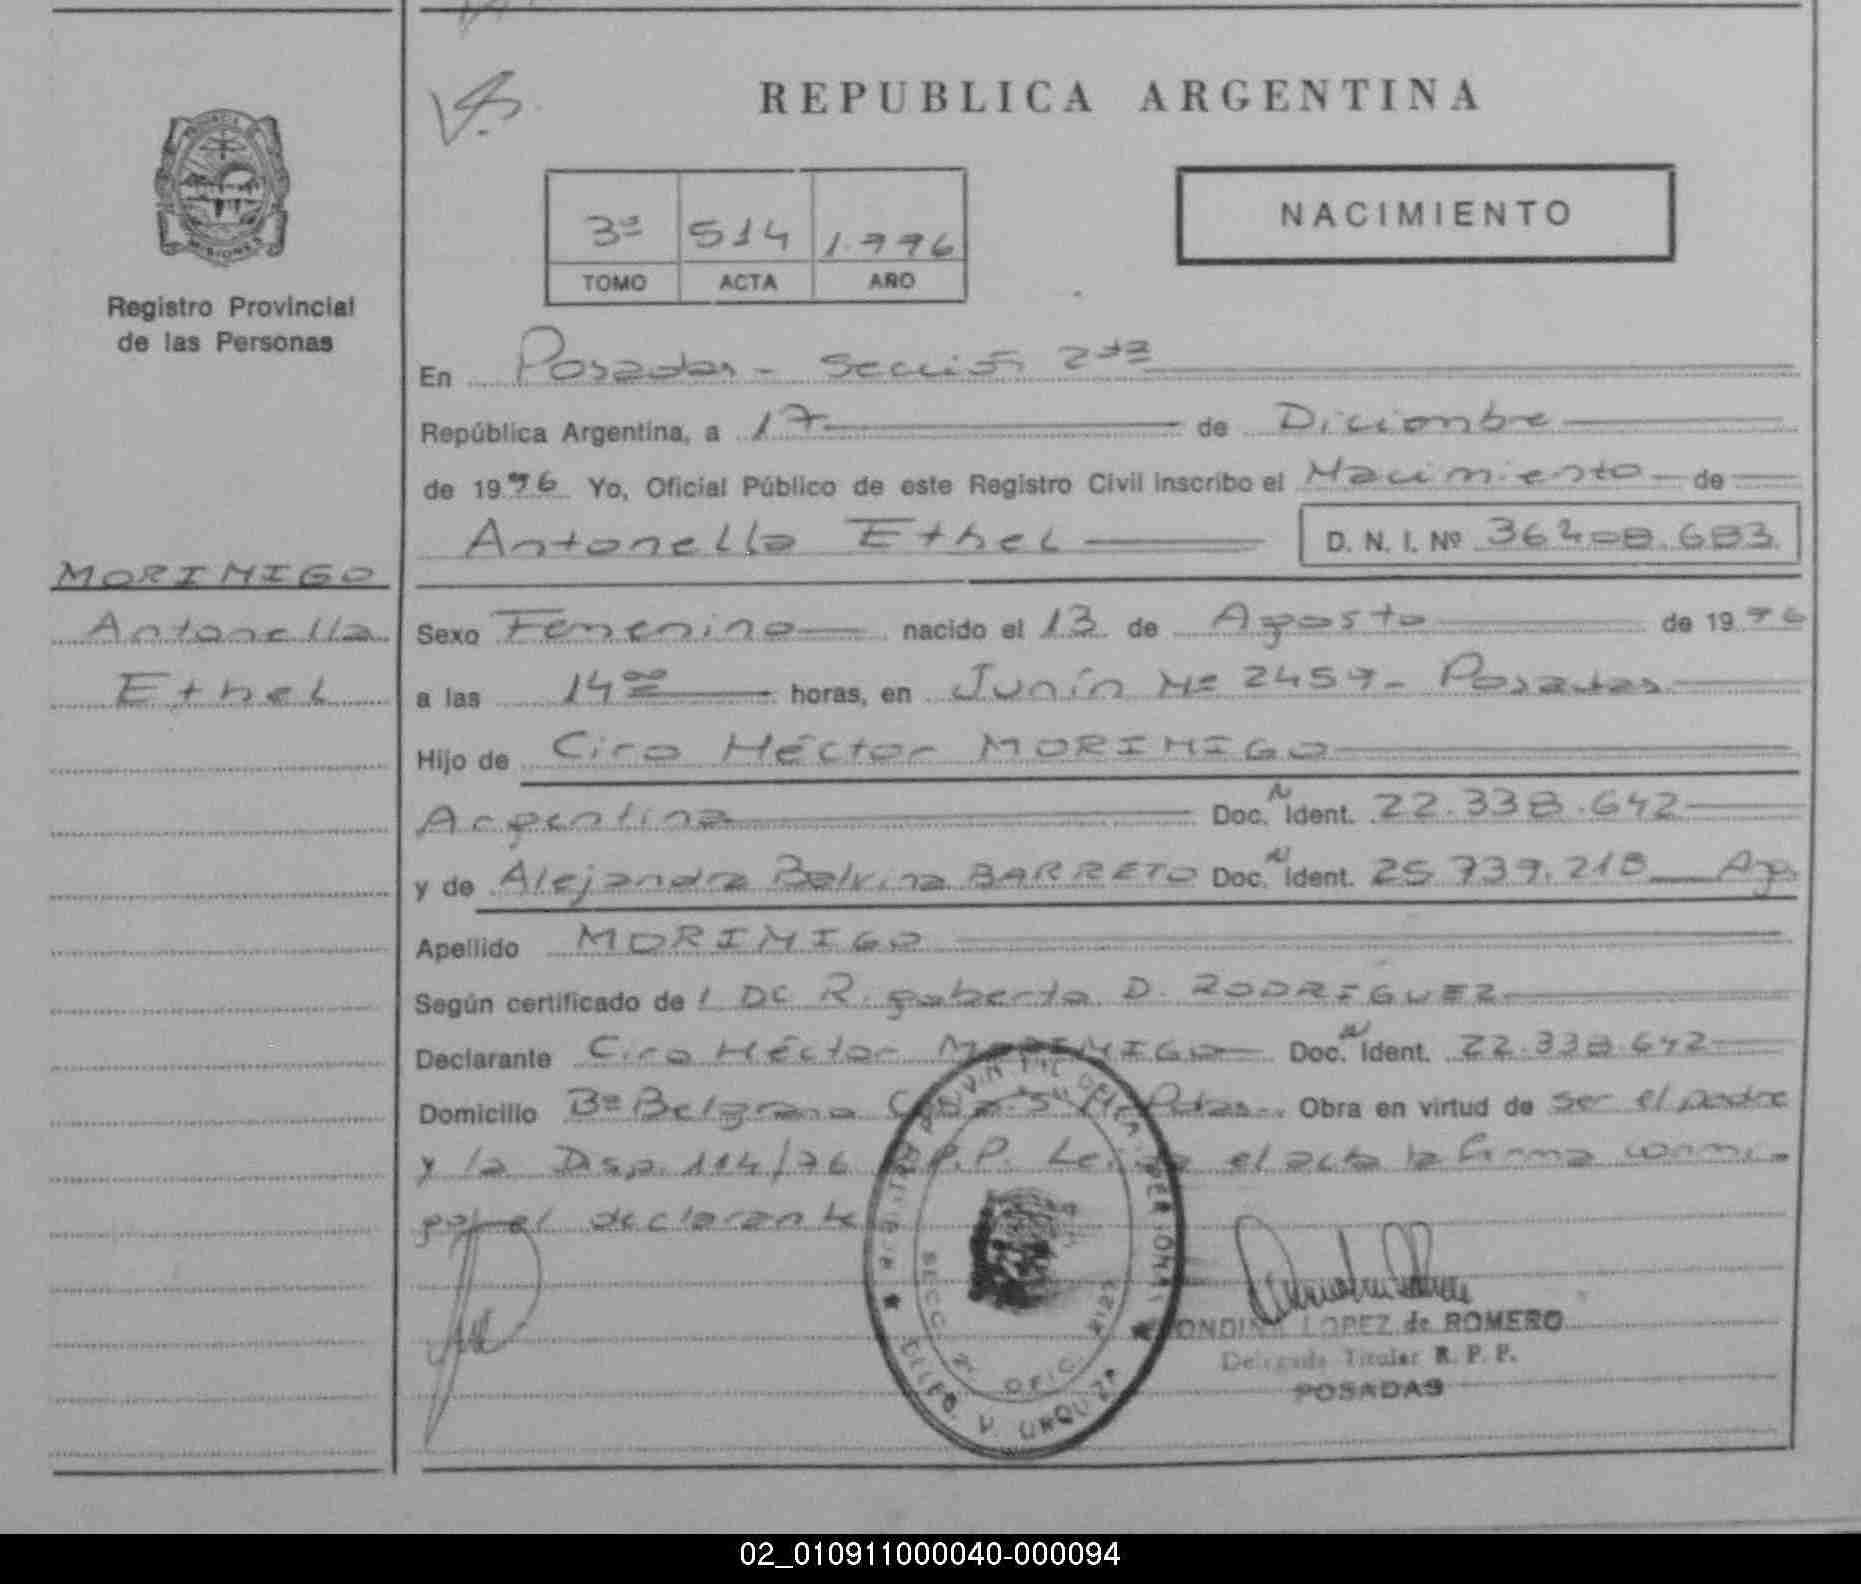 REPUBLICA ARGENTINA
PROVINCIA DE
MISIONES
Registro Provincial
de las Personas
3º 514 1.996
TOMO ACTA AÑO
NACIMIENTO
En Posadas - Sección 2da
República Argentina, a 17 de Diciembre
de 1996 Yo, Oficial Público de este Registro Civil inscribo el Nacimiento de
Antonella Ethel D. N. I. Nº 36.408.683
MORINIGO
Antonella
Ethel
Sexo Femenino nacido el 13 de Agosto de 1996
a las 14 00 horas, en Junín Nº 2459 - Posadas
Hijo de Ciro Héctor MORINIGO
Argentina Doc. N Ident. 22.338.642
y de Alejandra Balvina BARRETO Doc. N Ident. 25.739.218 Arg.
Apellido MORINIGO
Según certificado de / DC R. Roberto D. RODRIGUEZ
Declarante Ciro Héctor MORINIGO Doc. N Ident. 22.338.642
Domicilio Bº Belgrano Pdas. Obra en virtud de ser el padre
y la Disp. 114/96 R.P.P. Leída el acta la firma conmi-
go el declarante
SECC. 2ª OFIC.
URQUIZA
ONDINA LOPEZ de ROMERO
Delegada Titular R. P. P.
POSADAS
02_010911000040-000094